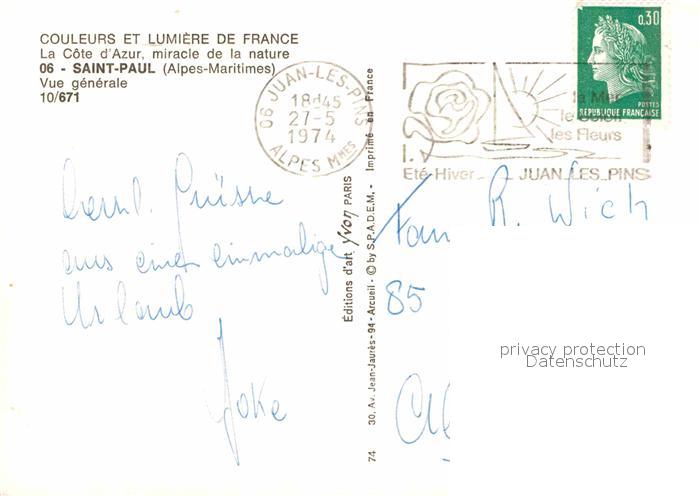 COULEURS ET LUMIÈRE DE FRANCE
La Côte d'Azur, miracle de la nature
06 - SAINT-PAUL (Alpes-Maritimes)
Vue générale
10/671
06 JUAN-LES-PINS
18H45
27-5
1974
ALPES MMES
la Mer
le Soleil
les Fleurs
Eté-Hiver JUAN LES PINS
0,30
POSTES
RÉPUBLIQUE FRANÇAISE
Grüsse
aus einmalige
Urlaub
Joke
Editions d'art Yvon PARIS
30, Av. Jean-Jaurès - 94 - Arcueil - © by S.P.A.D.E.M. - Imprimé en France
74
Fam R. Wich
85
privacy protection
Datenschutz